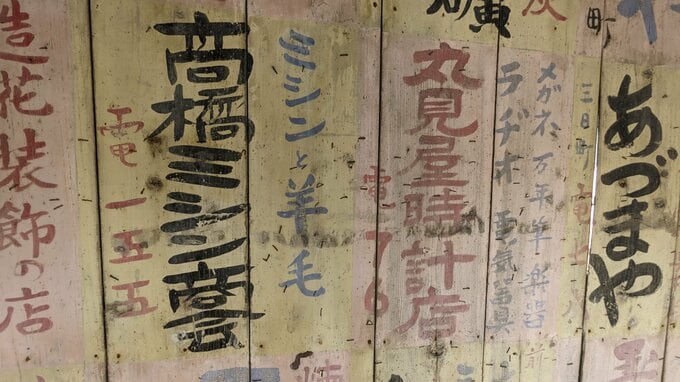 あづまや
三日町
電七八
メガネ 万年筆 楽器
ラヂオ 電気器具
丸見屋時計店
電76
ミシンと羊毛
高橋ミシン商会
電一五五
造花装飾の店